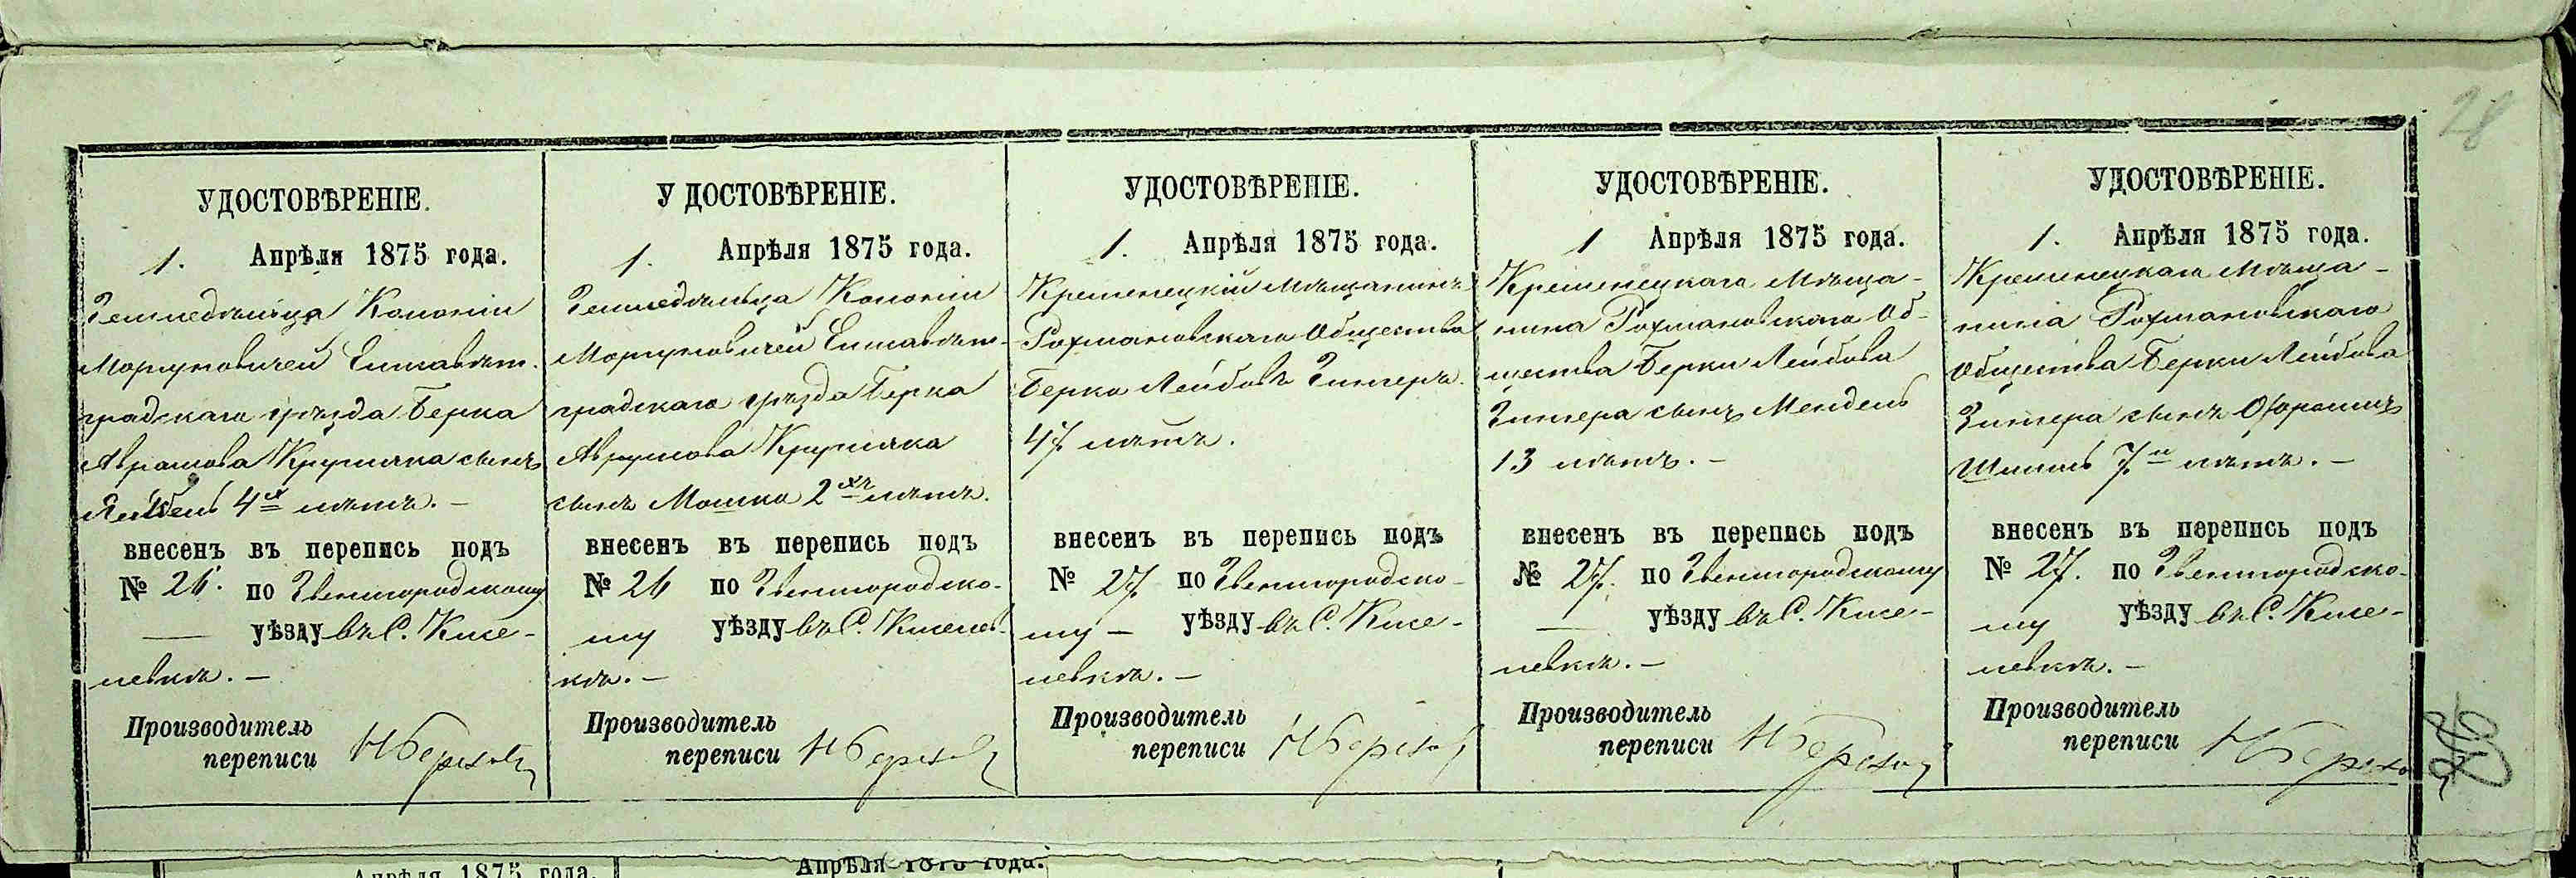 28
УДОСТОВѢРЕНІЕ.
1. Апрѣля 1875 года.
Земледѣльца Колоніи
Моргуновичей Елисавет-
градскаго уѣзда Берка
Аврамова Крупника сынъ
Лейбель 4х лѣтъ. —
внесенъ въ перепись подъ
№ 26. по Звенигородскому
— уѣзду въ С. Кисе-
левкѣ. —
Производитель
переписи
УДОСТОВѢРЕНІЕ.
1. Апрѣля 1875 года.
Земледѣльца Колоніи
Моргуновичей Елисавет-
градскаго уѣзда Берка
Аврумова Крупника
сынъ Мошко 2хъ лѣтъ.
внесенъ въ перепись подъ
№ 26 по Звенигородско-
му уѣзду въ С. Киселев-
кѣ. —
Производитель
переписи
УДОСТОВѢРЕНІЕ.
1. Апрѣля 1875 года.
Кременецкій Мѣщанинъ
Рохмановскаго Общества
Берко Лейбовъ Зингеръ.
47 лѣтъ.
внесенъ въ перепись подъ
№ 27. по Звенигородско-
му — уѣзду въ С. Кисе-
левкѣ. —
Производитель
переписи
УДОСТОВѢРЕНІЕ.
1 Апрѣля 1875 года.
Кременецкаго Мѣща-
нина Рохмановскаго Об-
щества Берки Лейбова
Зингера сынъ Мендель
13 лѣтъ. —
внесенъ въ перепись подъ
№ 27. по Звенигородскому
— уѣзду въ С. Кисе-
левкѣ. —
Производитель
переписи
УДОСТОВѢРЕНІЕ.
1. Апрѣля 1875 года.
Кременецкаго Мѣща-
нина Рохмановскаго
Общества Берки Лейбова
Зингера сынъ
7и лѣтъ. —
внесенъ въ перепись подъ
№ 27. по Звенигородско-
му уѣзду въ С. Кисе-
левкѣ. —
Производитель
переписи
Апрѣля 1875 года.
Апрѣля 1875 года.